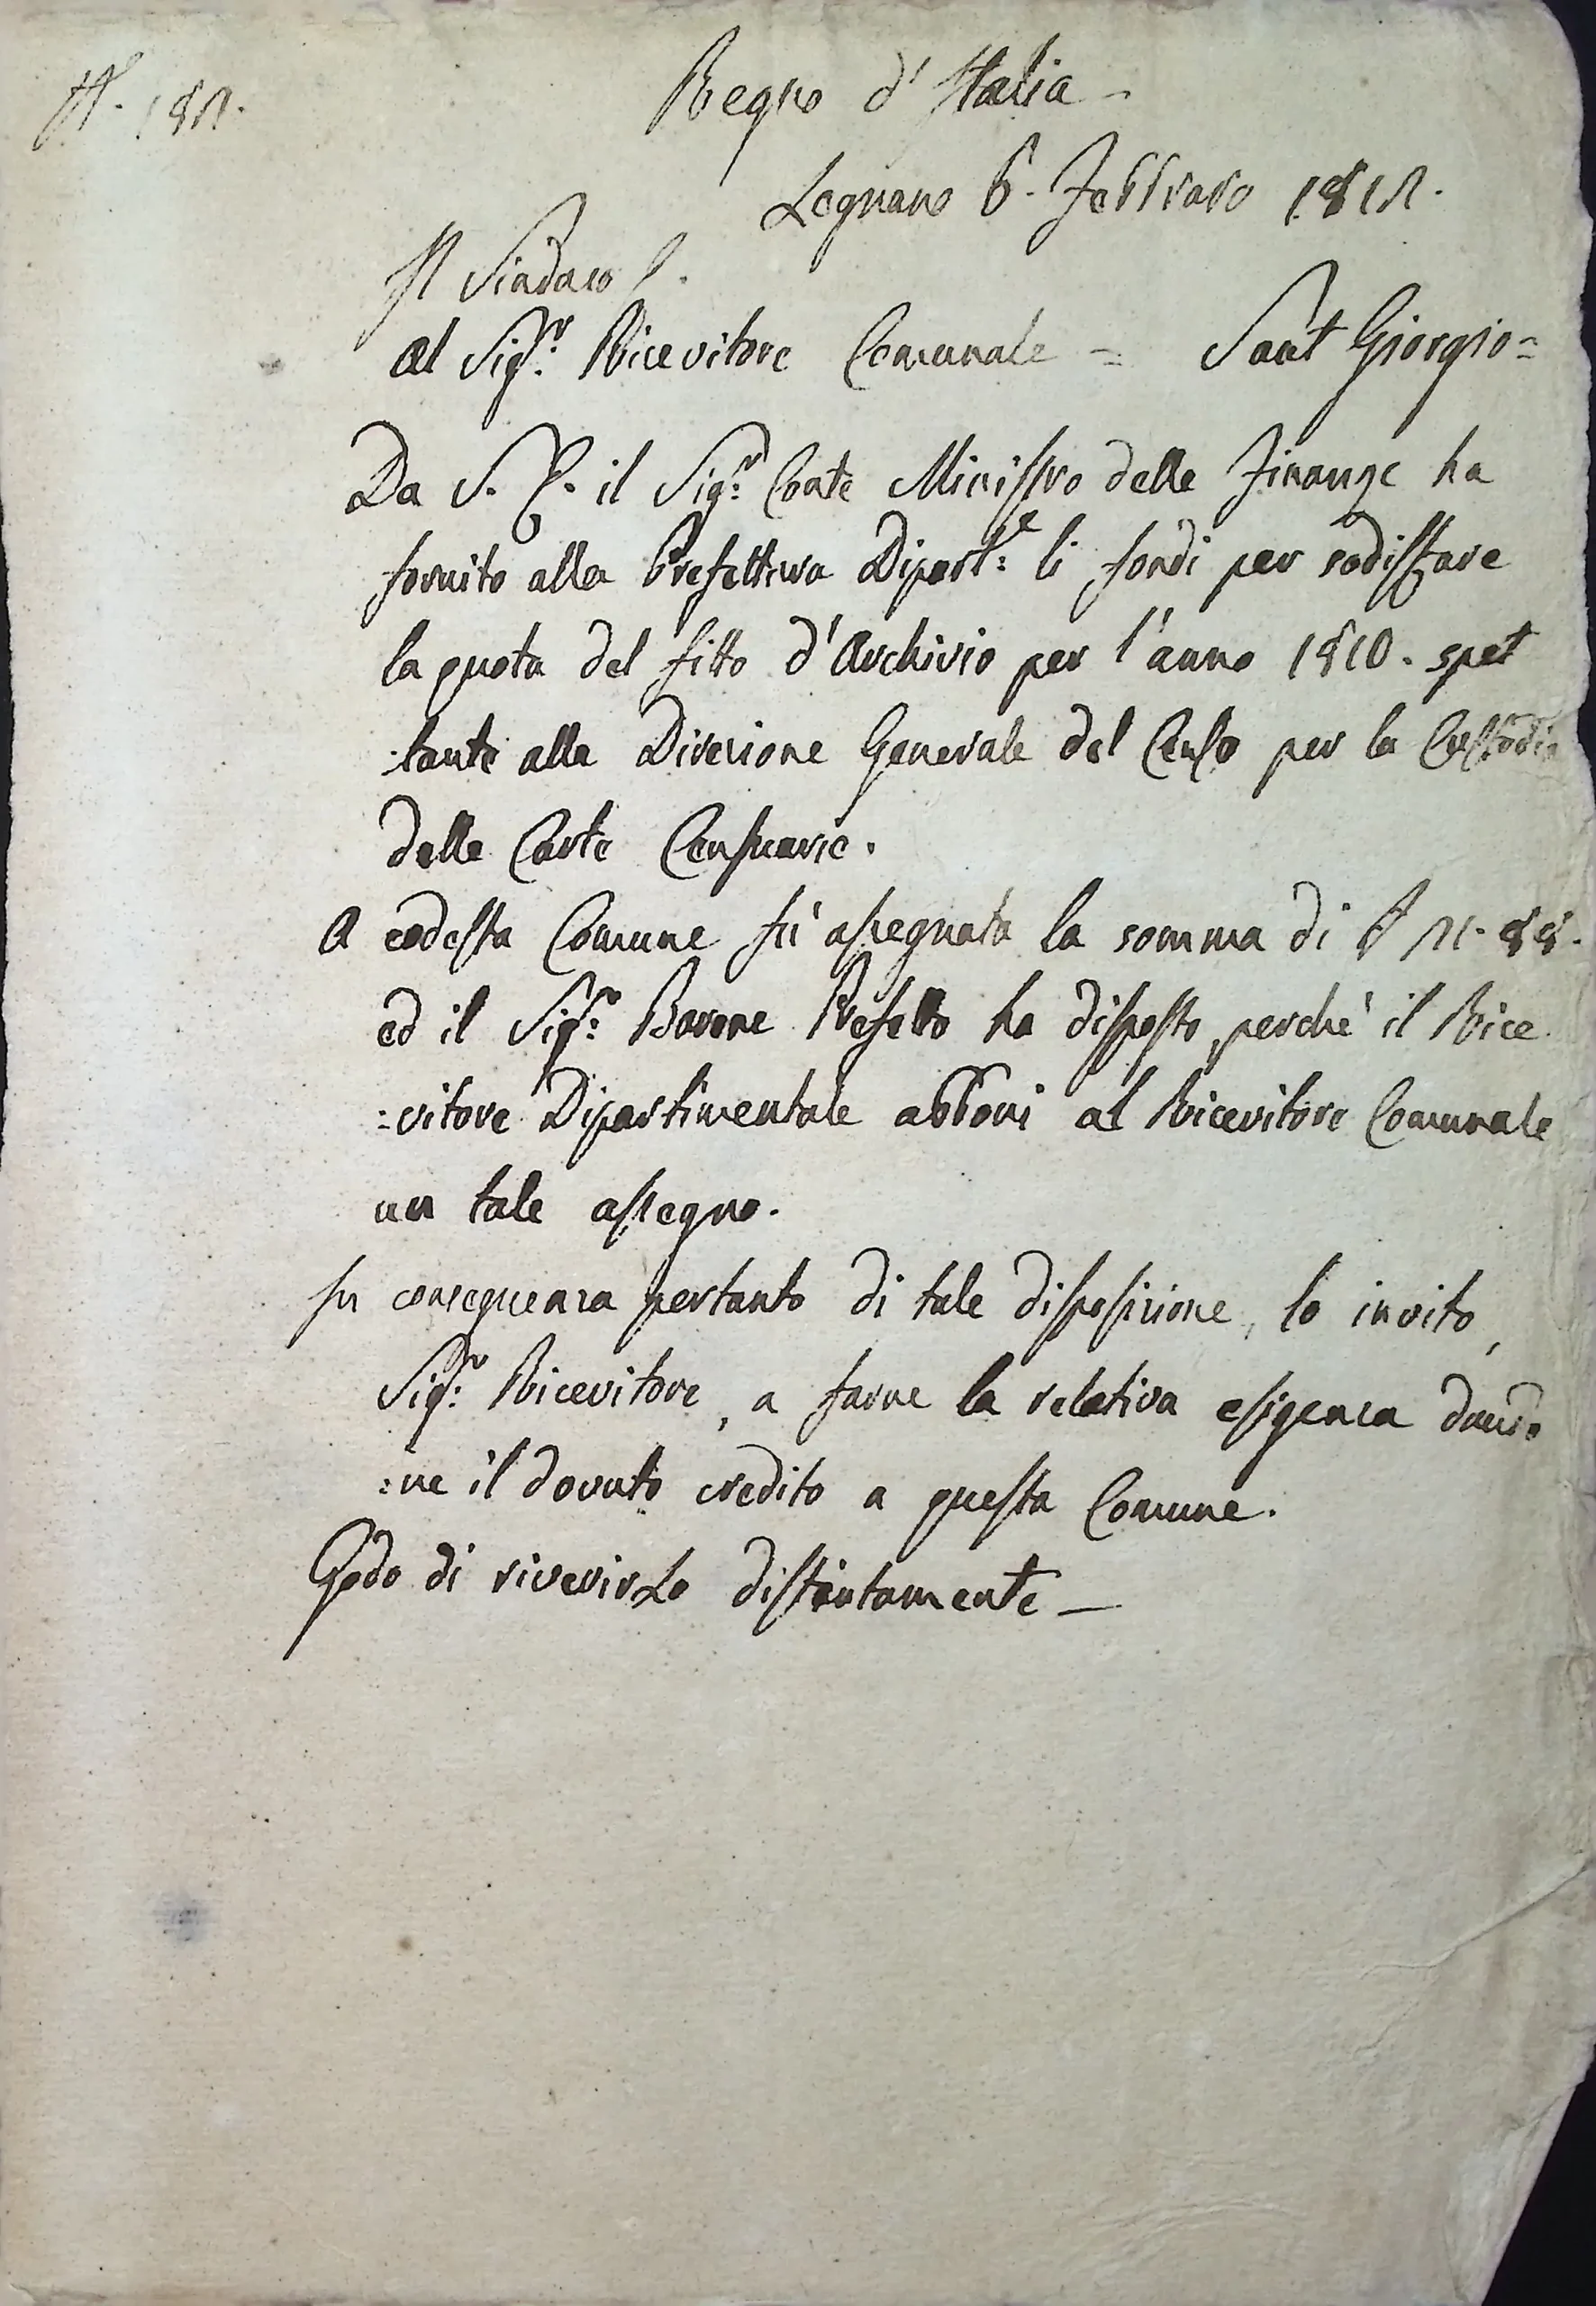 N. 182.
Regno d'Italia -
Legnano 6. Febbraro 1812.
Il Sindaco
Al Sigr: Ricevitore Comunale = Sant Giorgio =
Da S. E. il Sigr: Conte Ministro delle Finanze ha
fornito alla Prefettura Dipartle: li fondi per sodisfare
la quota del fitto d'Archivio per l'anno 1810. spet
:tante alla Direzione Generale del Censo per la Custodia
delle Carte Censuarie.
A codesta Comune fù assegnata la somma di 88.
ed il Sigr: Barone Prefetto ha disposto, perchè il Rice
:vitore Dipartimentale abboni al Ricevitore Comunale
un tale assegno.
In conseguenza pertanto di tale disposizione, lo invito,
Sigr: Ricevitore, a farne la relativa esigenza dando
:ne il dovuto credito a questa Comune.
Godo di riverirLo distintamente —